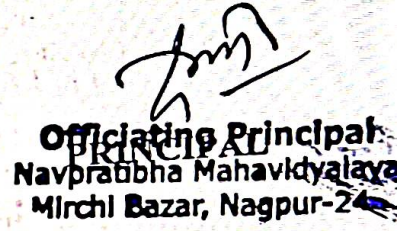 Officiating Principal
PRINCIPAL
Navpratibha Mahavidyalaya
Mirchi Bazar, Nagpur-24